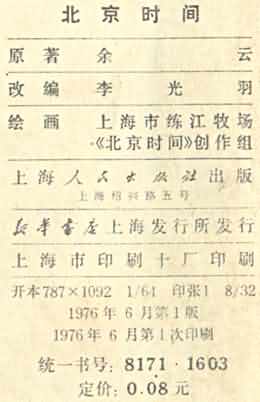 北京时间
原著 余云
改编 李光羽
绘画 上海市练江牧场
《北京时间》创作组
上海人民出版社出版
上海绍兴路五号
新华书店上海发行所发行
上海市印刷十厂印刷
开本787×1092 1/64 印张1 8/32
1976年6月第1版
1976年6月第1次印刷
统一书号：8171·1603
定价：0.08元